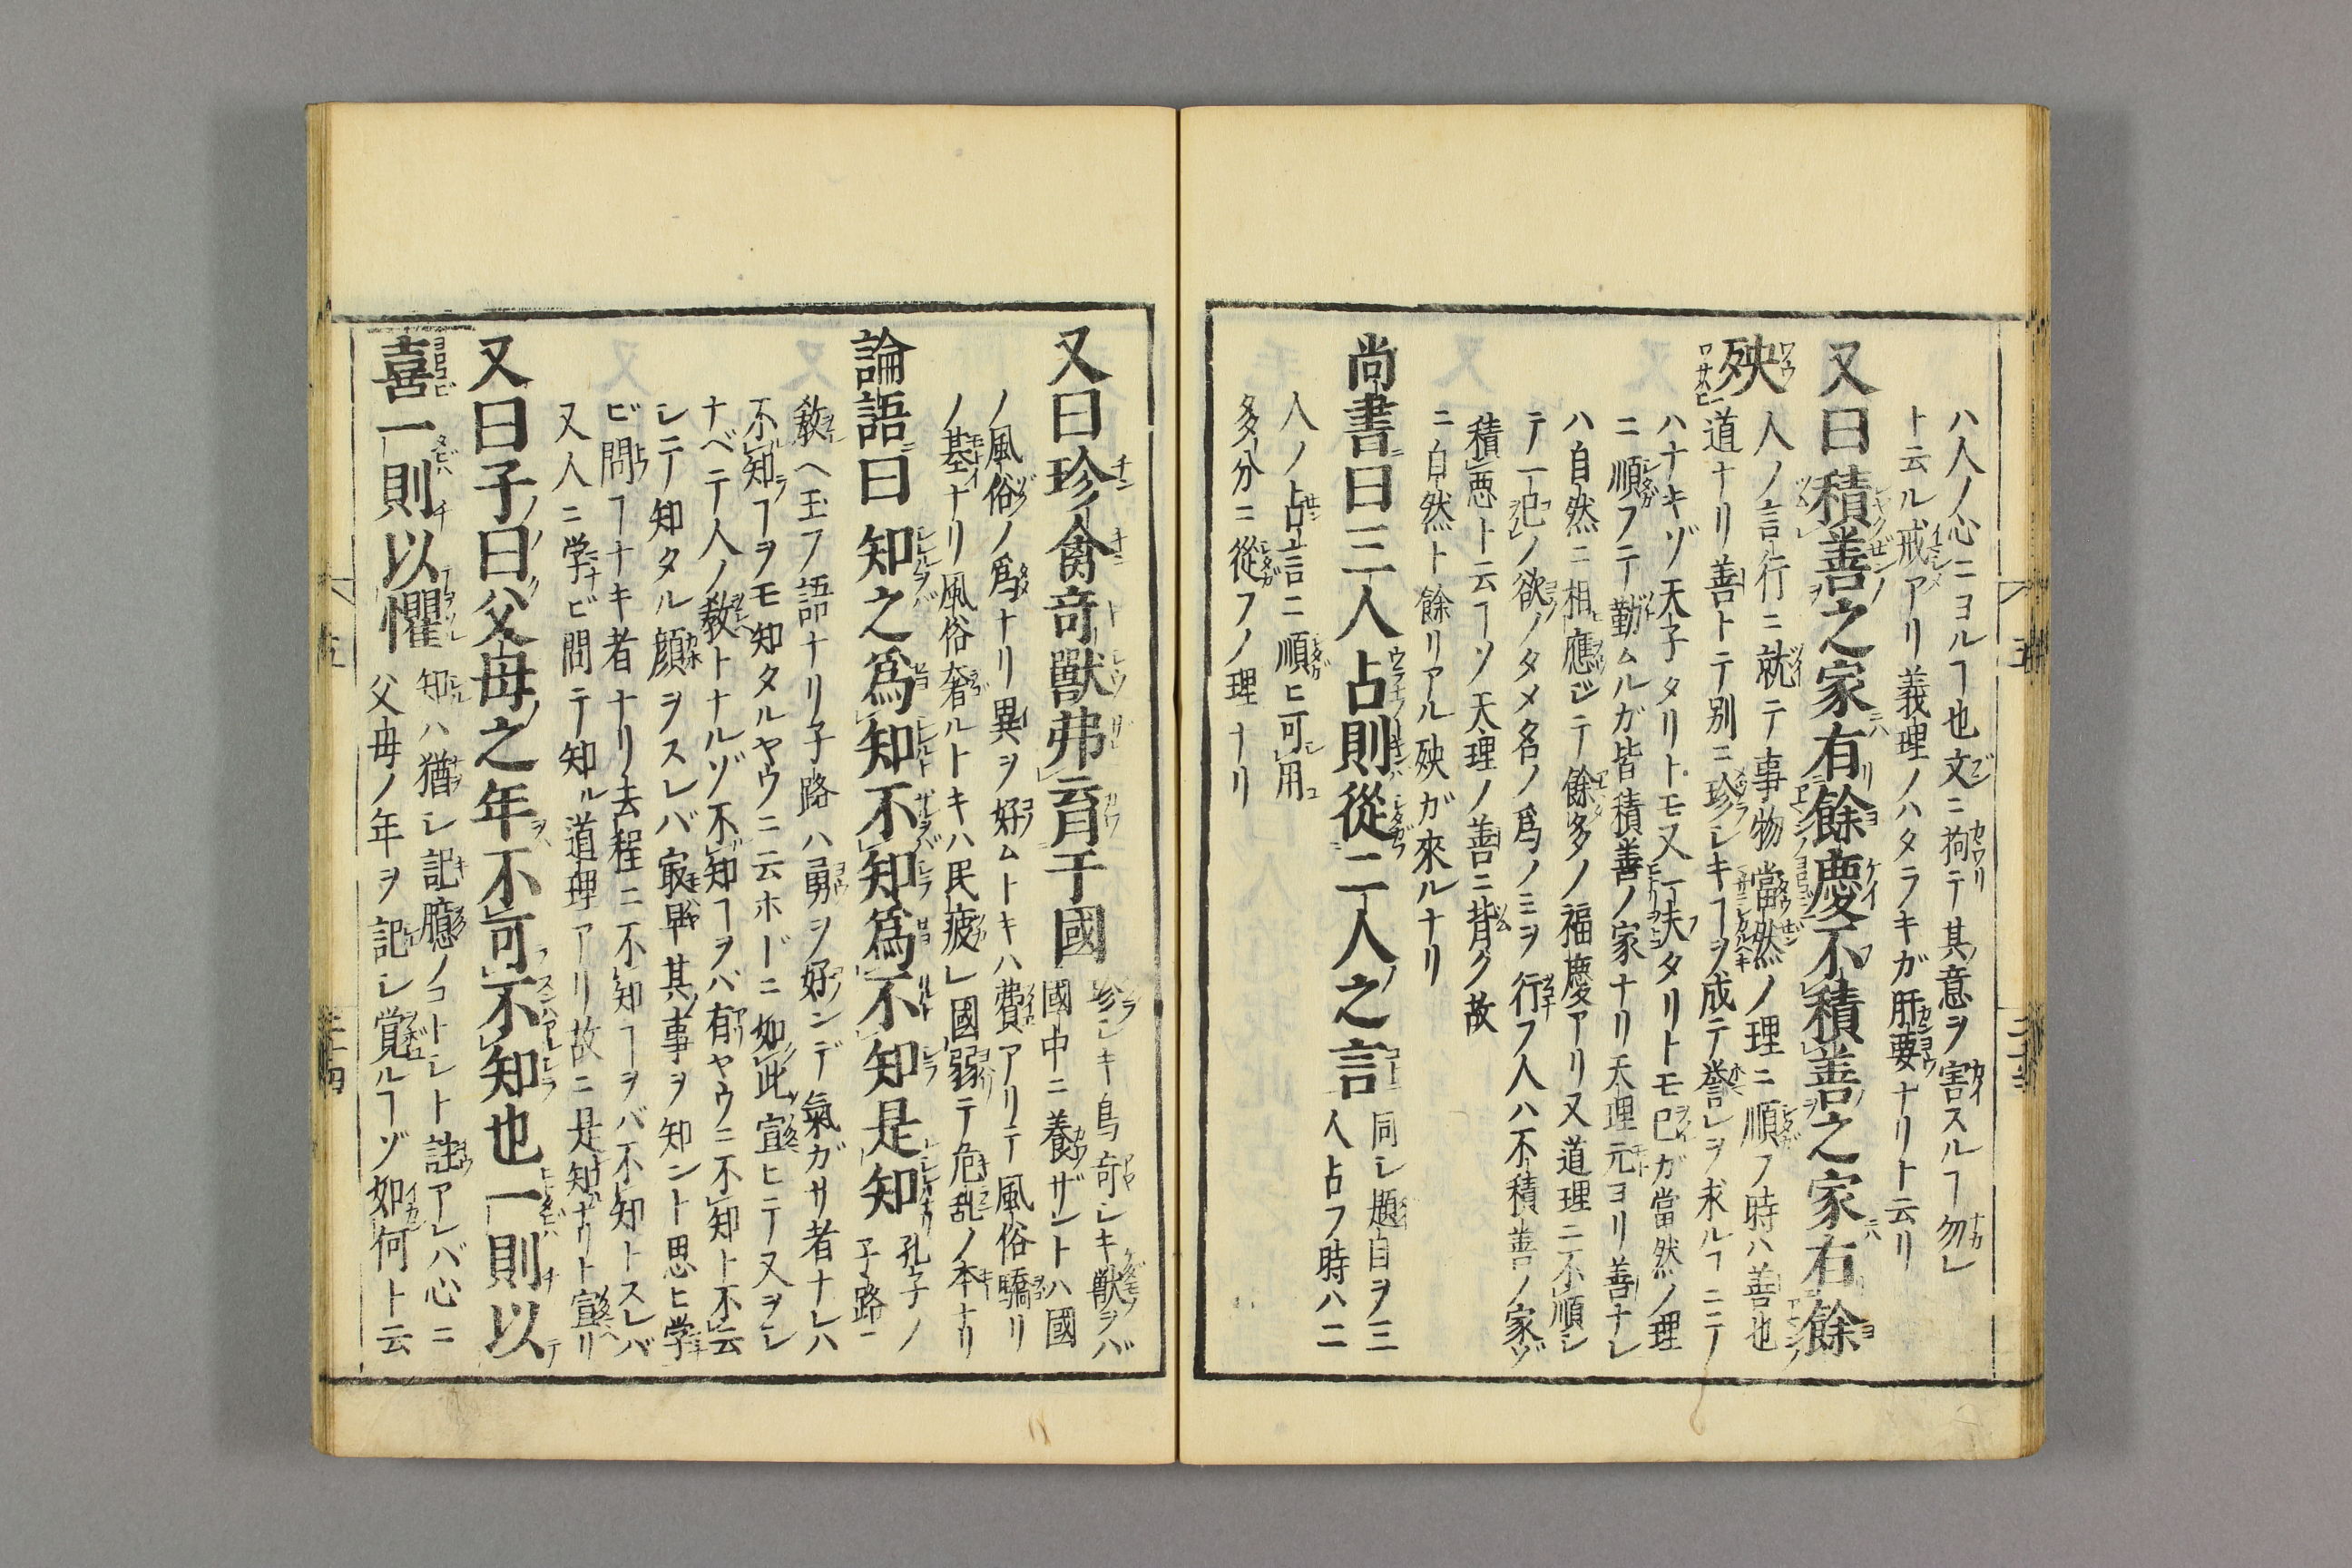 ハ人ノ心ニヨルヿ也文ニ拘テ其意ヲ害スルヿ勿レ
ト云ル戒アリ義理ノハタラキガ肝要ナリト云リ
又曰積善之家有餘慶不積善之家右餘
殃
人ノ言行ニ就テ事物當然ノ理ニ順フ時ハ善也
道ナリ善トテ別ニ珍レキヿヲ成テ誉レヲ求ルヿニ
ハナキゾ天子タリトモ又一夫タリトモ巳ガ當然ノ理
ニ順フテ勤ムルガ皆積善ノ家ナリ天理元ヨリ善ナレ
ハ自然ニ相應ジテ餘多ノ福慶アリ又道理ニ不順シ
テ一ノ欲ノタメ名ノ爲ノミヲ行フ人ハ不積善ノ家ゾ
積悪ト云ヿソ天理ノ善ニ背ク故
ニ自然ト餘リアル殃ガ來ルナリ
尚書曰三人占則從二人之言
同レ題目ヲ三
人占フ時ハ二
人ノ占言ニ順ヒ可用
多分ニ從フノ理ナリ
又曰珍禽奇獸弗育于國
珍レキ鳥奇レキ獣ヲバ
國中ニ養ザントハ國
ノ風俗ノ爲ナリ異ヲ好ムトキハ費アリテ風俗驕リ
ノ基ナリ風俗奢ルトキハ民疲レ國弱テ危乱ノ本ナリ
論語曰知之爲知不知爲不知是知
孔子ノ
子路ニ
教ヘ玉フ語ナリ子路ハ勇ヲ好ンデ氣ガサ者ナレハ
不知ヿヲモ知タルヤウニ云ホドニ如此宣ヒテ又ヲレ
ナベテ人ノ教トナルゾ不知ヿヲバ有ヤウニ不知ト不云
レテ知タル顔ヲスレバ㝡早其事ヲ知ント思ヒ学
ビ問ヿナキ者ナリ去程ニ不知ヿヲバ不知トスレバ
又人ニ学ビ問テ知ル道理アリ故ニ是知ナリト宣リ
又曰子曰父母之年不可不知也一則以
喜一則以懼
知ハ猶レ記臆ノコトレト註アレバ心ニ
父母ノ年ヲ記レ覚ルヿゾ如何ト云